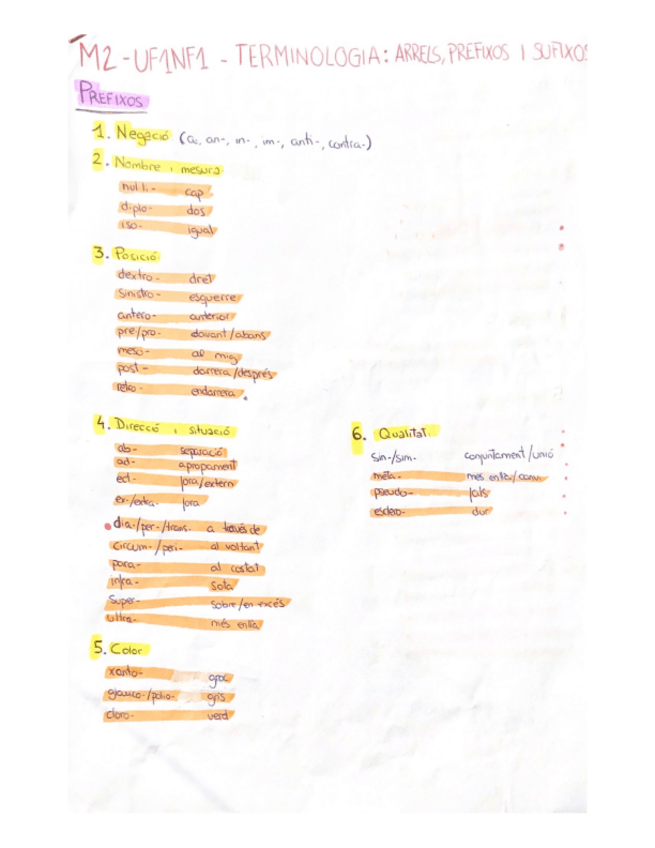 M2 - UF1NF1 - TERMINOLOGIA: ARRELS, PREFIXOS I SUFIXOS
PREFIXOS
1. Negació (a-, an-, in-, im-, anti-, contra-)
2. Nombre i mesura
nul·li- cap
diplo- dos
iso- igual
3. Posició
dextro- dret
sinistro- esquerre
antero- anterior
pre/pro- davant/abans
meso- al mig
post- darrera/després
retro- endarrera
4. Direcció i situació
ab- separació
ad- apropament
ect- fora/extern
ex-/extra- fora
dia-/per-/trans- a través de
circum-/peri- al voltant
para- al costat
infra- sota
Super- sobre/en excés
ultra- més enllà
5. Color
xanto- groc
glauco-/polio- gris
cloro- verd
6. Qualitat
sin-/sim- conjuntament/unió
meta- més enllà/canvi
pseudo- fals
esclero- dur